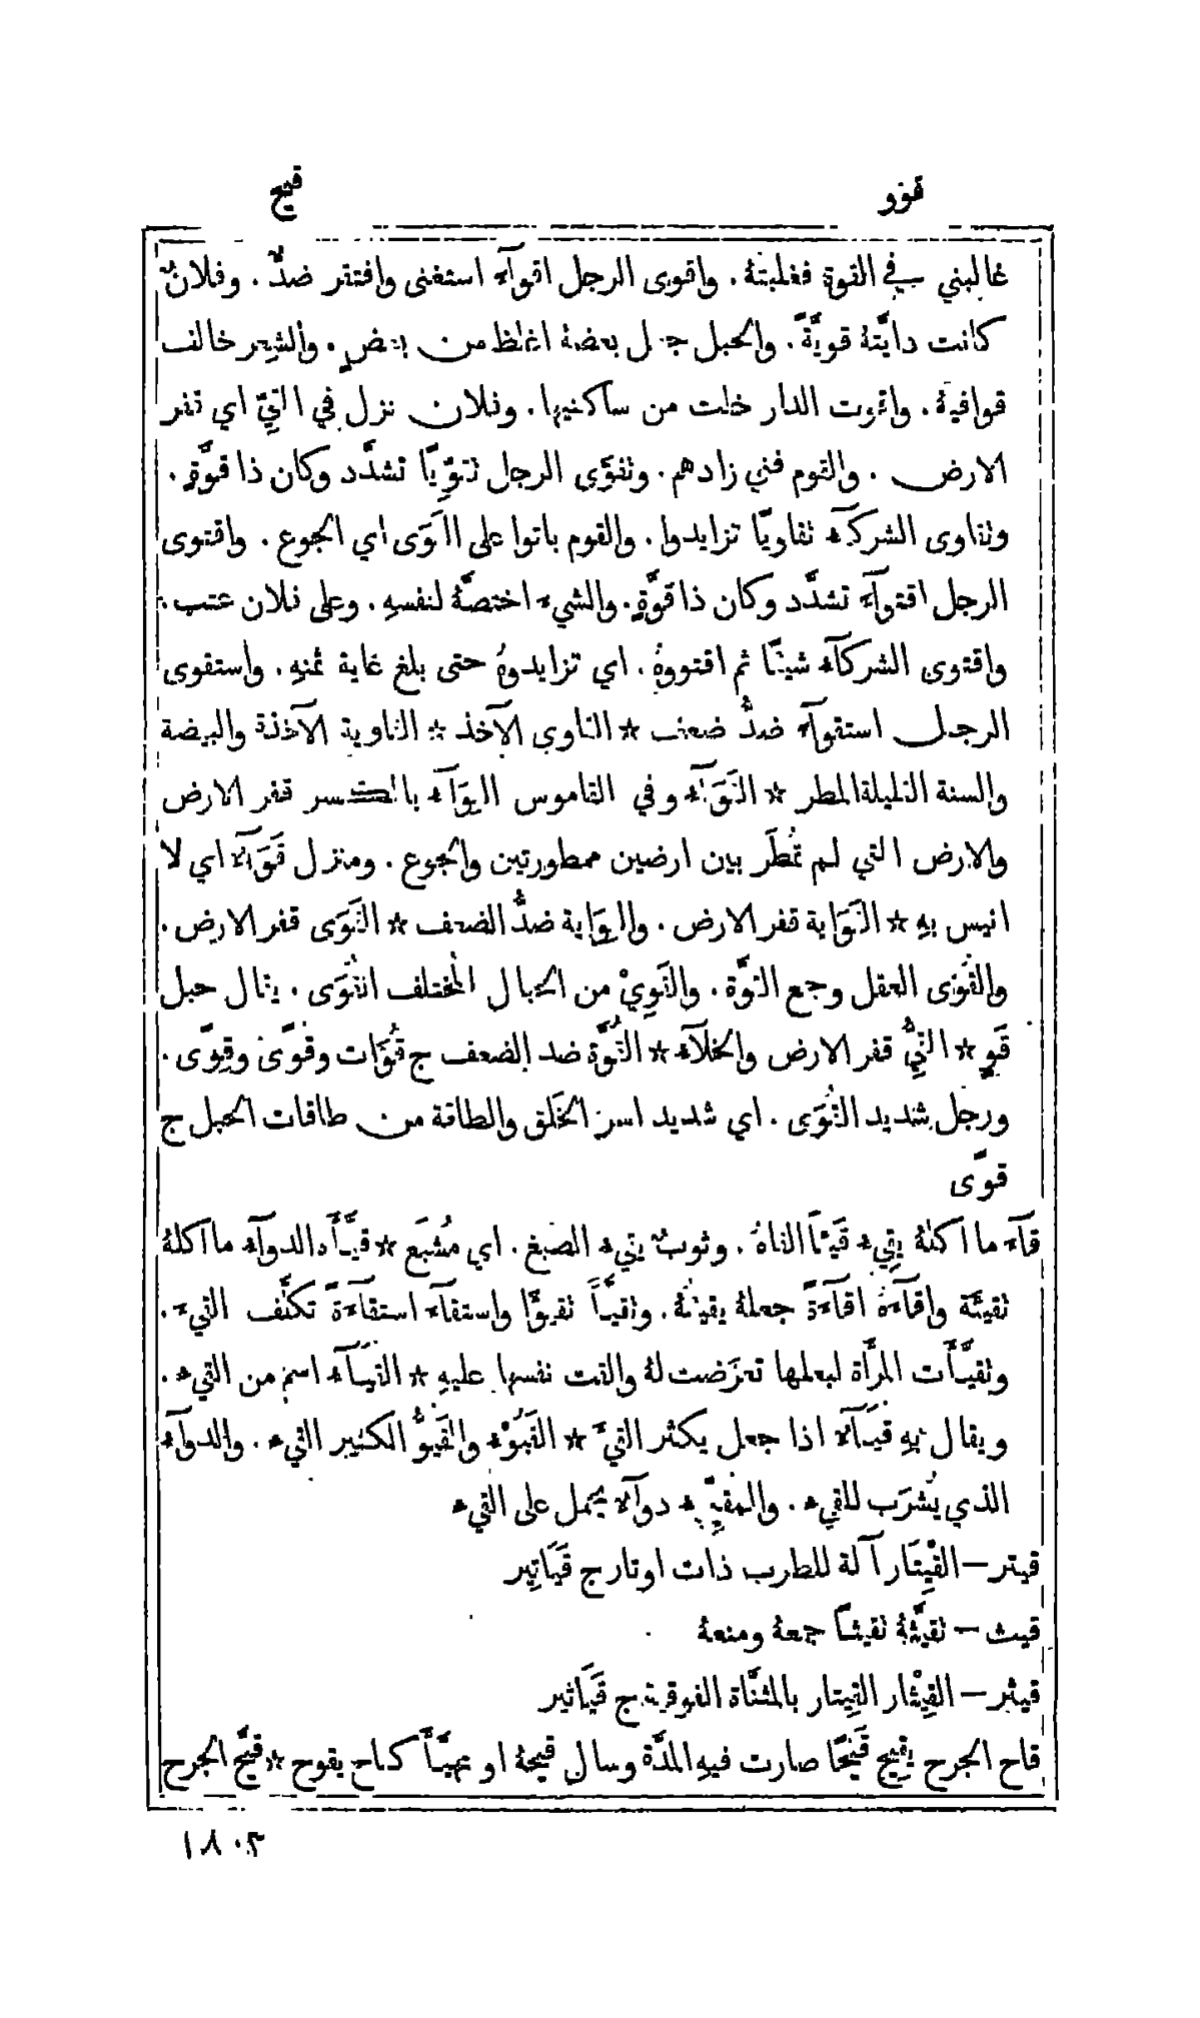 قوو
قيح
غالبني في القوة فغلبتهُ. واقوى الرجل اقوآءً استغنى وافتقر ضدٌّ. وفلانٌ
كانت دابَّتهُ قويَّةً. والحبل جعل بعضهُ اغلظ من بعضٍ. والشعر خالف
قوافيهُ. واقوت الدار خلت من ساكنيها. وفلان نزل في القِيِّ اي قفر
الارض. والقوم فني زادهم. وتقوَّى الرجل تقوِّيًا تشدَّد وكان ذا قوَّةٍ.
وتقاوى الشركآء تقاويًا تزايدوا. والقوم باتوا على القَوَى اي الجوع. واقتوى
الرجل اقتوآءً تشدَّد وكان ذا قوَّةٍ. والشيء اختصَّهُ لنفسهِ. وعلى فلان عتب.
واقتوى الشركآء شيئًا ثم اقتووهُ. اي تزايدوهُ حتى بلغ غاية ثمنهِ. واستقوى
الرجل استقوآءً ضدُّ ضعف * القاوي الآخذ * القاوية الآخذة والبيضة
والسنة القليلة المطر * القَوَآء وفي القاموس القِوَآء بالكسر قفر الارض
والارض التي لم تُمطَر بين ارضين ممطورتين والجوع. ومنزل قَوَآءٌ اي لا
انيس بهِ * القَوَاية قفر الارض. والقِوَاية ضدُّ الضعف * القَوَى قفر الارض.
والقُوَى العقل وجمع القوَّة. والقَوِيْ من الحبال المُختلف القُوَى. يقال حبل
قَوٍ * القِيُّ قفر الارض والخلآء * القُوَّة ضد الضعف ج قُوَّات وقُوًى وقِوًى.
ورجل شديد القُوَى. اي شديد اسر الخَلق والطاقة من طاقات الحبل ج
قوًى
قآء ما اكلهُ يقِيء قَيْئًا القاهُ. وثوبٌ يقيء الصبغ. اي مُشبَع * قيَّأَه الدوآء ما اكلهُ
تقيئة واقآءهُ اقآءةً جعلهُ يقيئهُ. وتقيَّأَ تقيؤًا واستقآء استقآءةً تكلَّف القيء.
وتقيَّأَت المرأة لبعلها تعرَّضت لهُ والقت نفسها عليهِ * القُيَآء اسم من القيء.
ويقال بهِ قُيَآءٌ اذا جعل يكثر القيءَ * القَيُوْء والقَيُوُّ الكثير القيء. والدوآء
الذي يُشرَب للقيء. والمقيِّئ دوآءٌ يحمل على القيء
قيتر – القِيْتَار آلة للطرب ذات اوتار ج قَيَاتِير
قيث – تقيَّثهُ تقيثًا جمعهُ ومنعهُ
قيثر – القِيْثار القِيتار بالمثنَّاة الفوقية ج قَيَاثير
قاح الجرح يقِيح قَيْحًا صارت فيهِ المدَّة وسال قيحهُ او تهيَّأَ كقاح يقوح * قيَّح الجرح
١٨٠٢